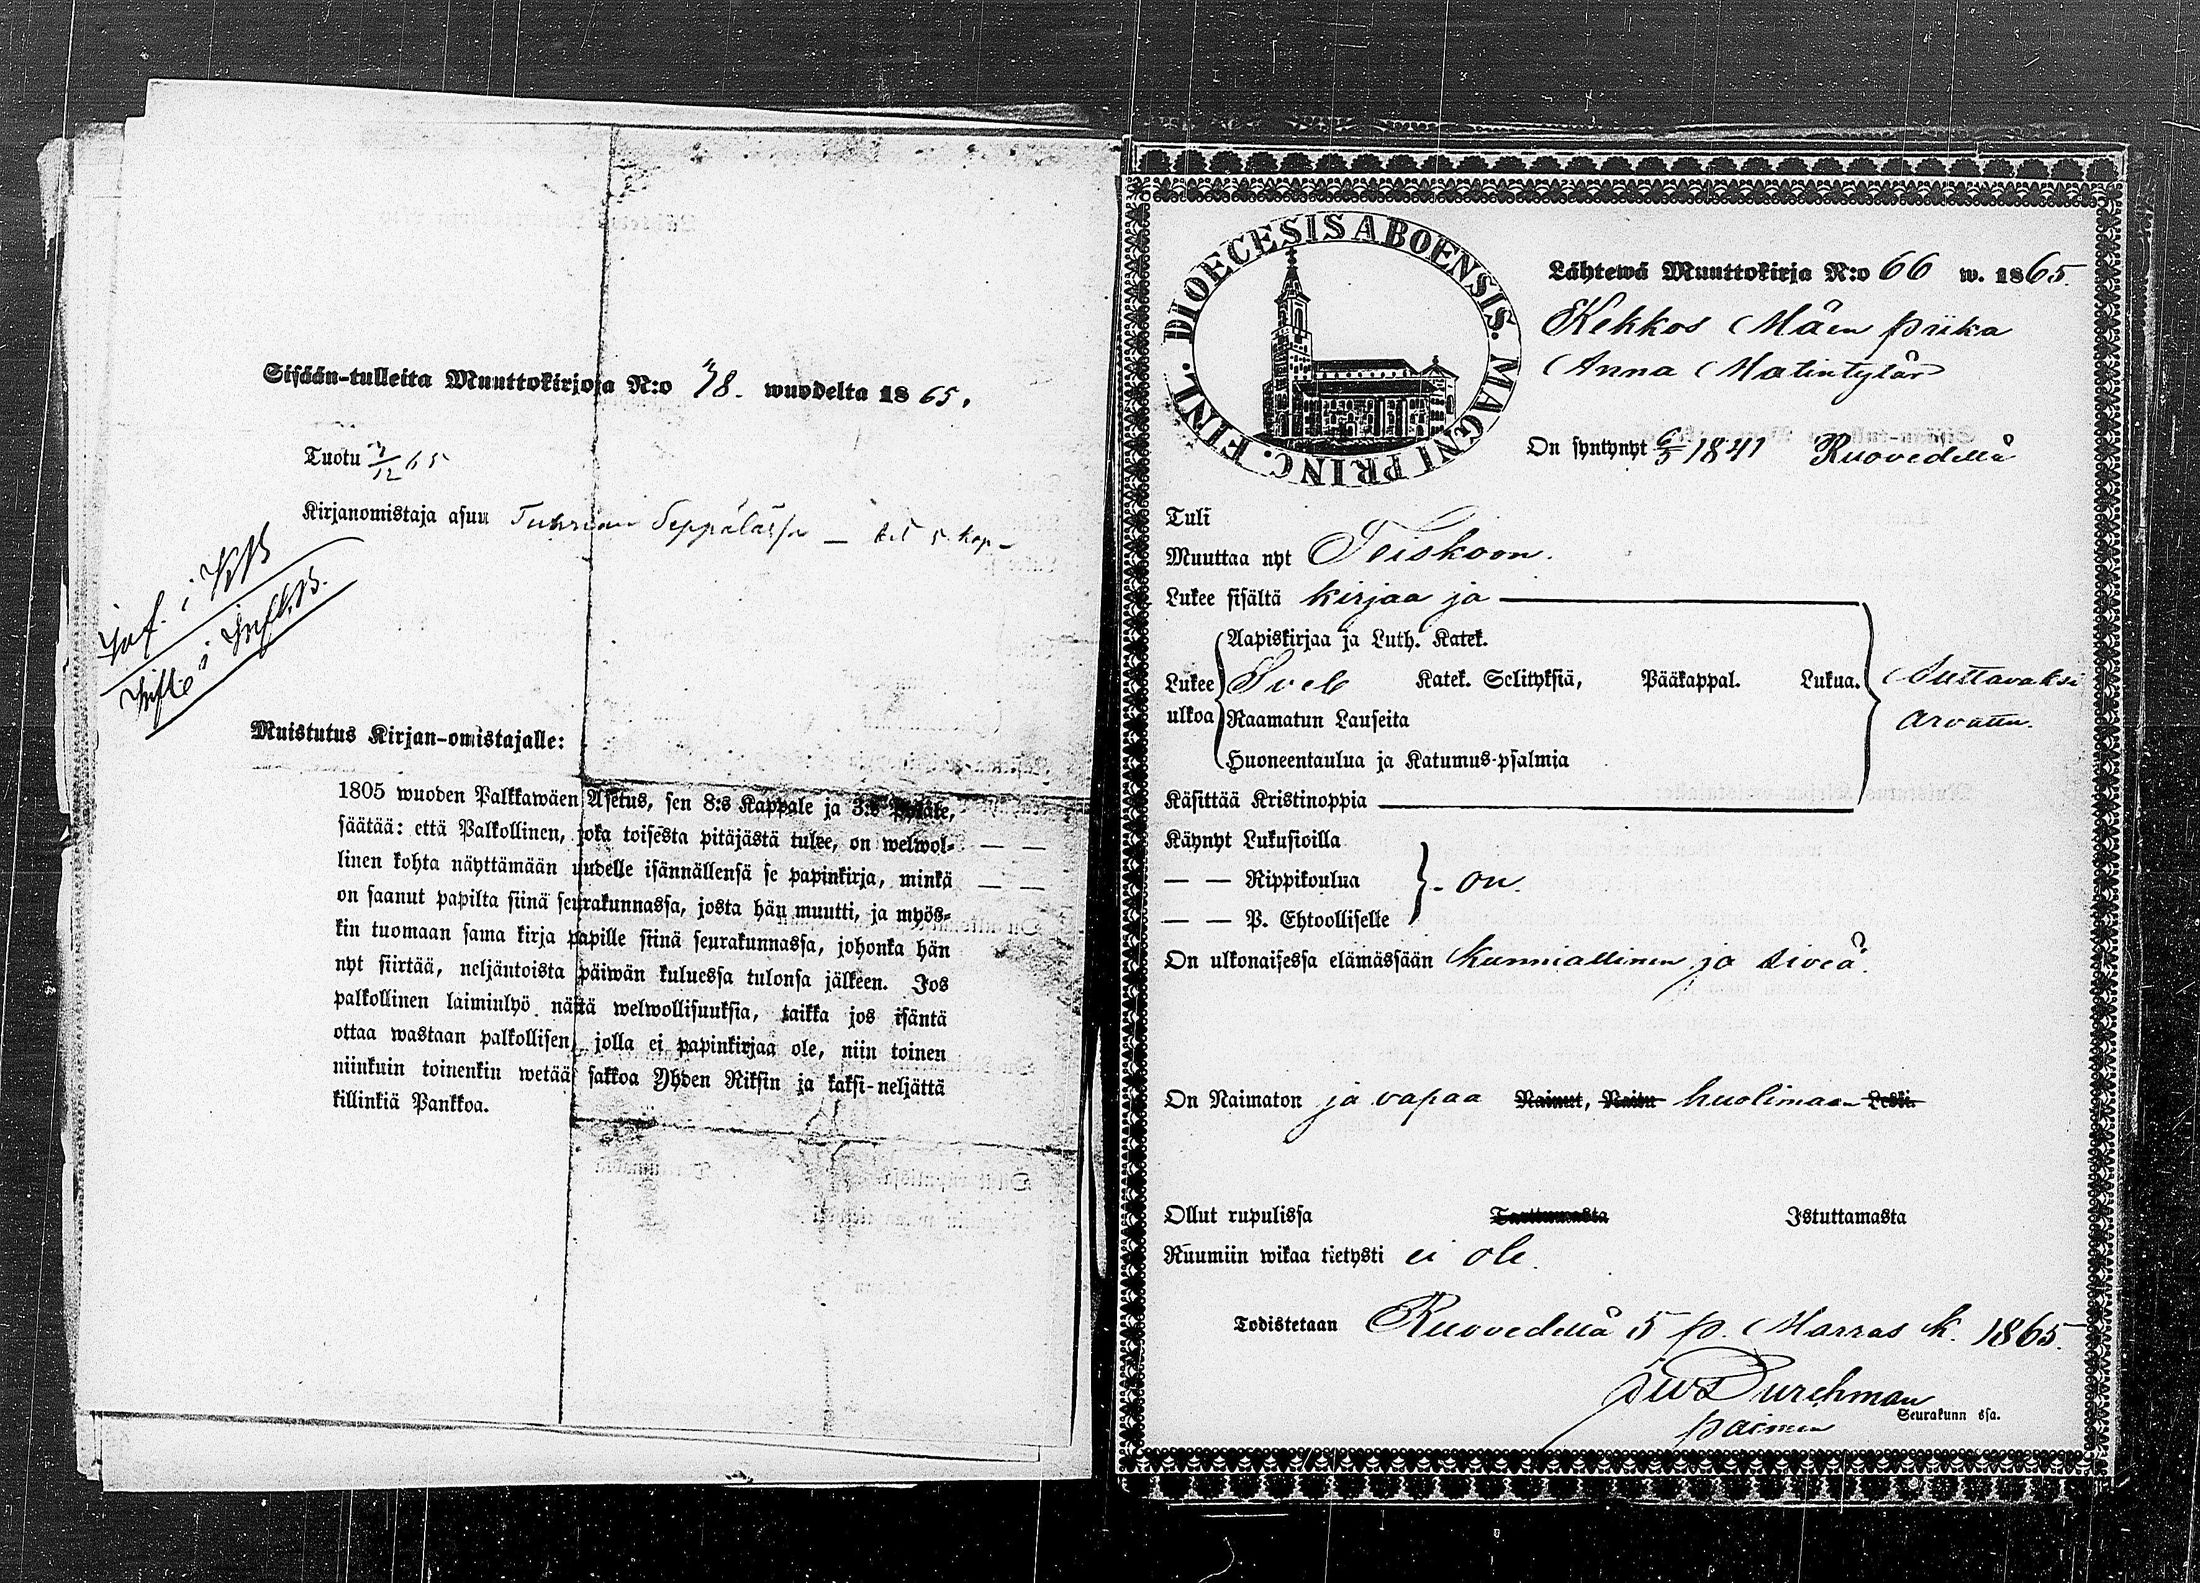 Sisään-tulleita Muuttokirjoja N:o 78. wuodelta 1865.
Tuotu 3/12 65
Kirjanomistaja asuu Seppälässä —
Inf. i KB
Muistutus Kirjan-omistajalle:
1805 wuoden Palkkawäen Asetus, sen 8:s Kappale ja 3:s
säätää: että Palkollinen, joka toisesta pitäjästä tulee, on welwol-
linen kohta näyttämään uudelle isännällensä se papinkirja, minkä
on saanut papilta siinä seurakunnassa, josta hän muutti, ja myös-
kin tuomaan sama kirja papille siinä seurakunnassa, johonka hän
nyt siirtää, neljäntoista päiwän kuluessa tulonsa jälkeen. Jos
palkollinen laiminlyö näitä welwollisuuksia, taikka jos isäntä
ottaa wastaan palkollisen, jolla ei papinkirjaa ole, niin toinen
niinkuin toinenkin wetää sakkoa Yhden Riksin ja kaksi-neljättä
killinkiä Pankkoa.
DIOECESIS ABOENSIS. MAGNI PRINC. FINL.
Lähtewä Muuttokirja N:o 66 w. 1865.
Kekkos Mäen piika
Anna Matintytär
On syntynyt 6/5 1841 Ruovedellä
Tuli
Muuttaa nyt Teiskoon.
Lukee sisältä kirjaa ja
Aapiskirjaa ja Luth. Katek.
Lukee Sveb Katek. Selityksiä, Pääkappal. Lukua. Auttavaksi
ulkoa Raamatun Lauseita arvattu.
Huoneentaulua ja Katumus-psalmia
Käsittää Kristinoppia
Käynyt Lukusioilla
— — Rippikoulua - on.
— — P. Ehtoolliselle
On ulkonaisessa elämässään kunniallinen ja siveä.
On Naimaton ja vapaa Nainut, Naitu huolimaan Leski.
Ollut rupulissa Tarttumasta Istuttamasta
Ruumiin wikaa tietysti ei ole.
Todistetaan Ruovedellä 5 p. Marras k. 1865.
Durchman
paimen Seurakunn ssa.